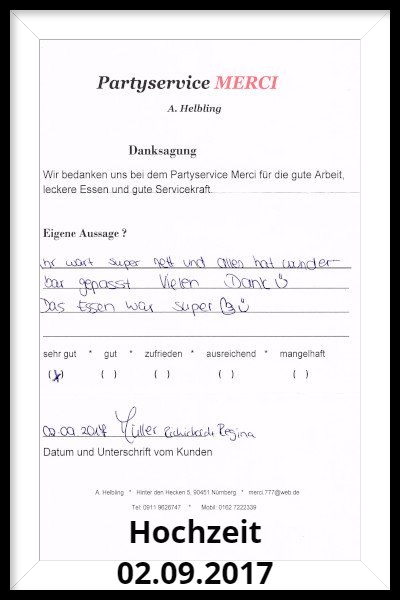 Partyservice MERCI
A. Helbling
Danksagung
Wir bedanken uns bei dem Partyservice Merci für die gute Arbeit,
leckere Essen und gute Servicekraft.
Eigene Aussage ?
Ihr wart super nett und alles hat wunder-
bar gepasst Vielen Dank
Das Essen war super
sehr gut * gut * zufrieden * ausreichend * mangelhaft
(x) ( ) ( ) ( ) ( )
02.09.2017 Müller Regina
Datum und Unterschrift vom Kunden
A. Helbling * Hinter den Hecken 5, 90451 Nürnberg * merci.777@web.de
Tel: 0911 9626747 * Mobil: 0162 7222339
Hochzeit
02.09.2017